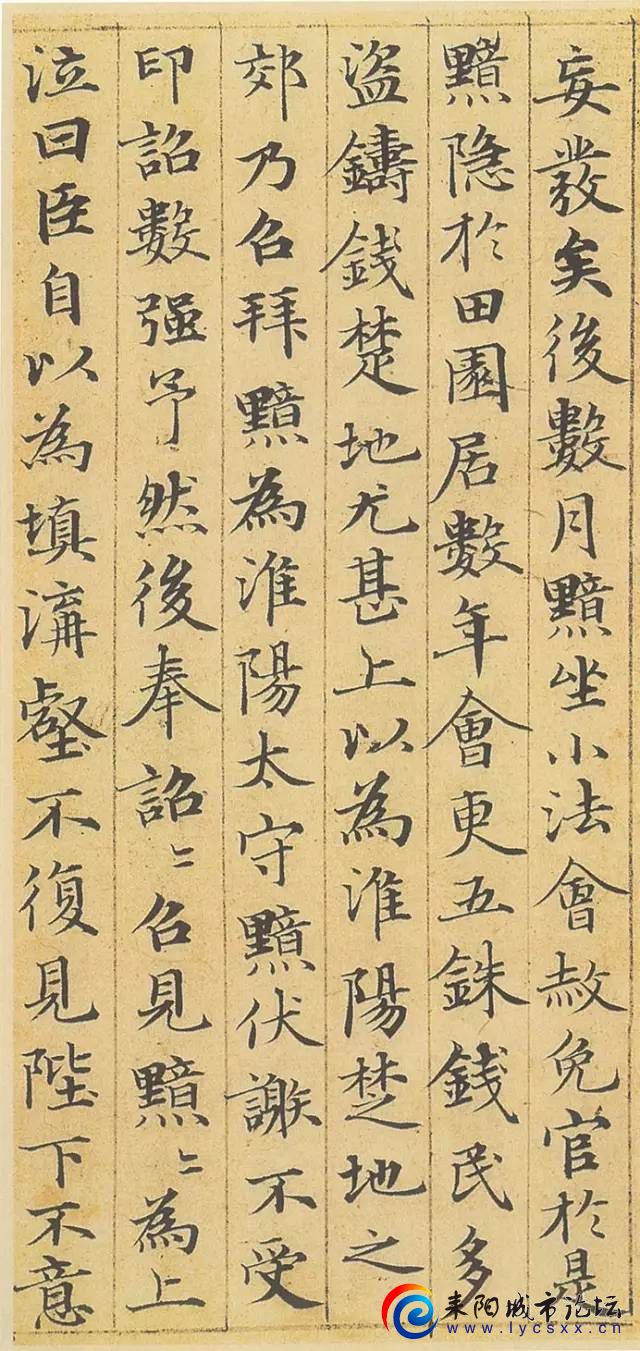 妄發矣後數月黯坐小法會赦免官於是
黯隱於田園居數年會更五銖錢民多
盜鑄錢楚地尤甚上以為淮陽楚地之
郊乃召拜黯為淮陽太守黯伏謝不受
印詔數强予然後奉詔〻召見黯〻為上
泣曰臣自以為填溝壑不復見陛下不意
耒阳城市论坛
www.lycsxx.cn